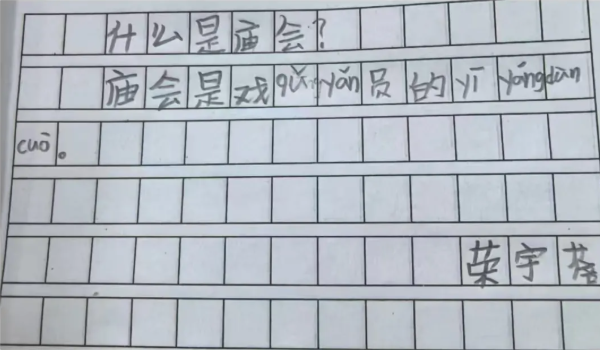 什么是庙会?
庙会是戏qǔ yǎn员的yī yángdùn
cuò。
荣宇